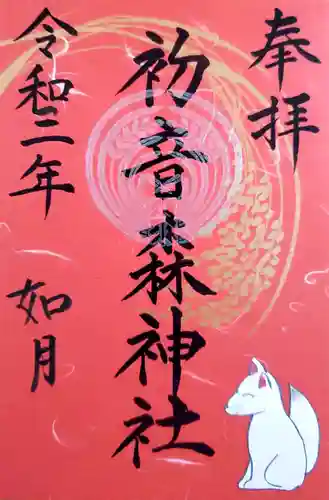 奉拝
初音森神社
令和二年
如月